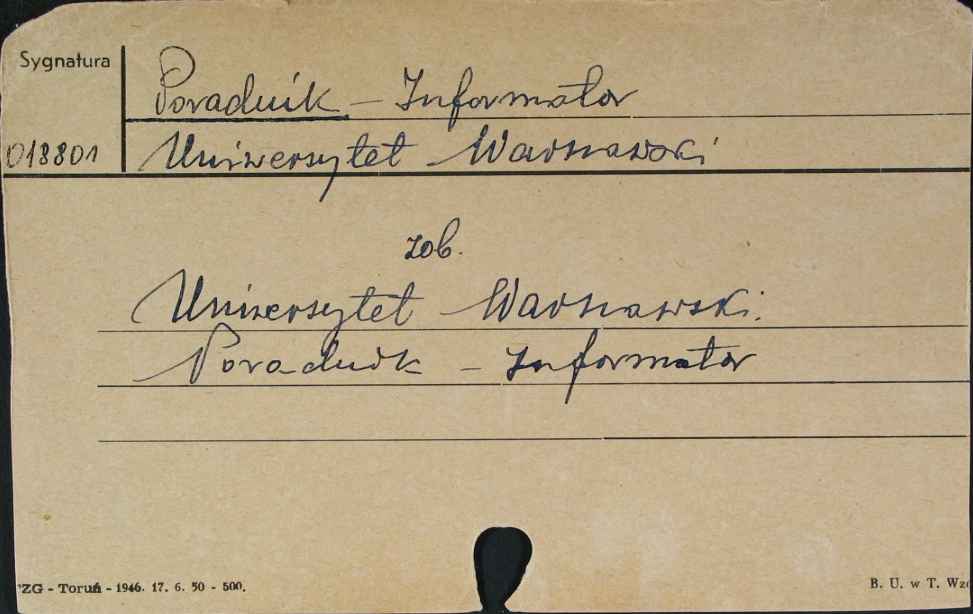 Sygnatura
Poradnik - Informator
018801
Uniwersytet Warszawski
zob.
Uniwersytet Warszawski.
Poradnik - Informator
ZG - Toruń - 1946. 17. 6. 50 - 500.
B. U. w T.